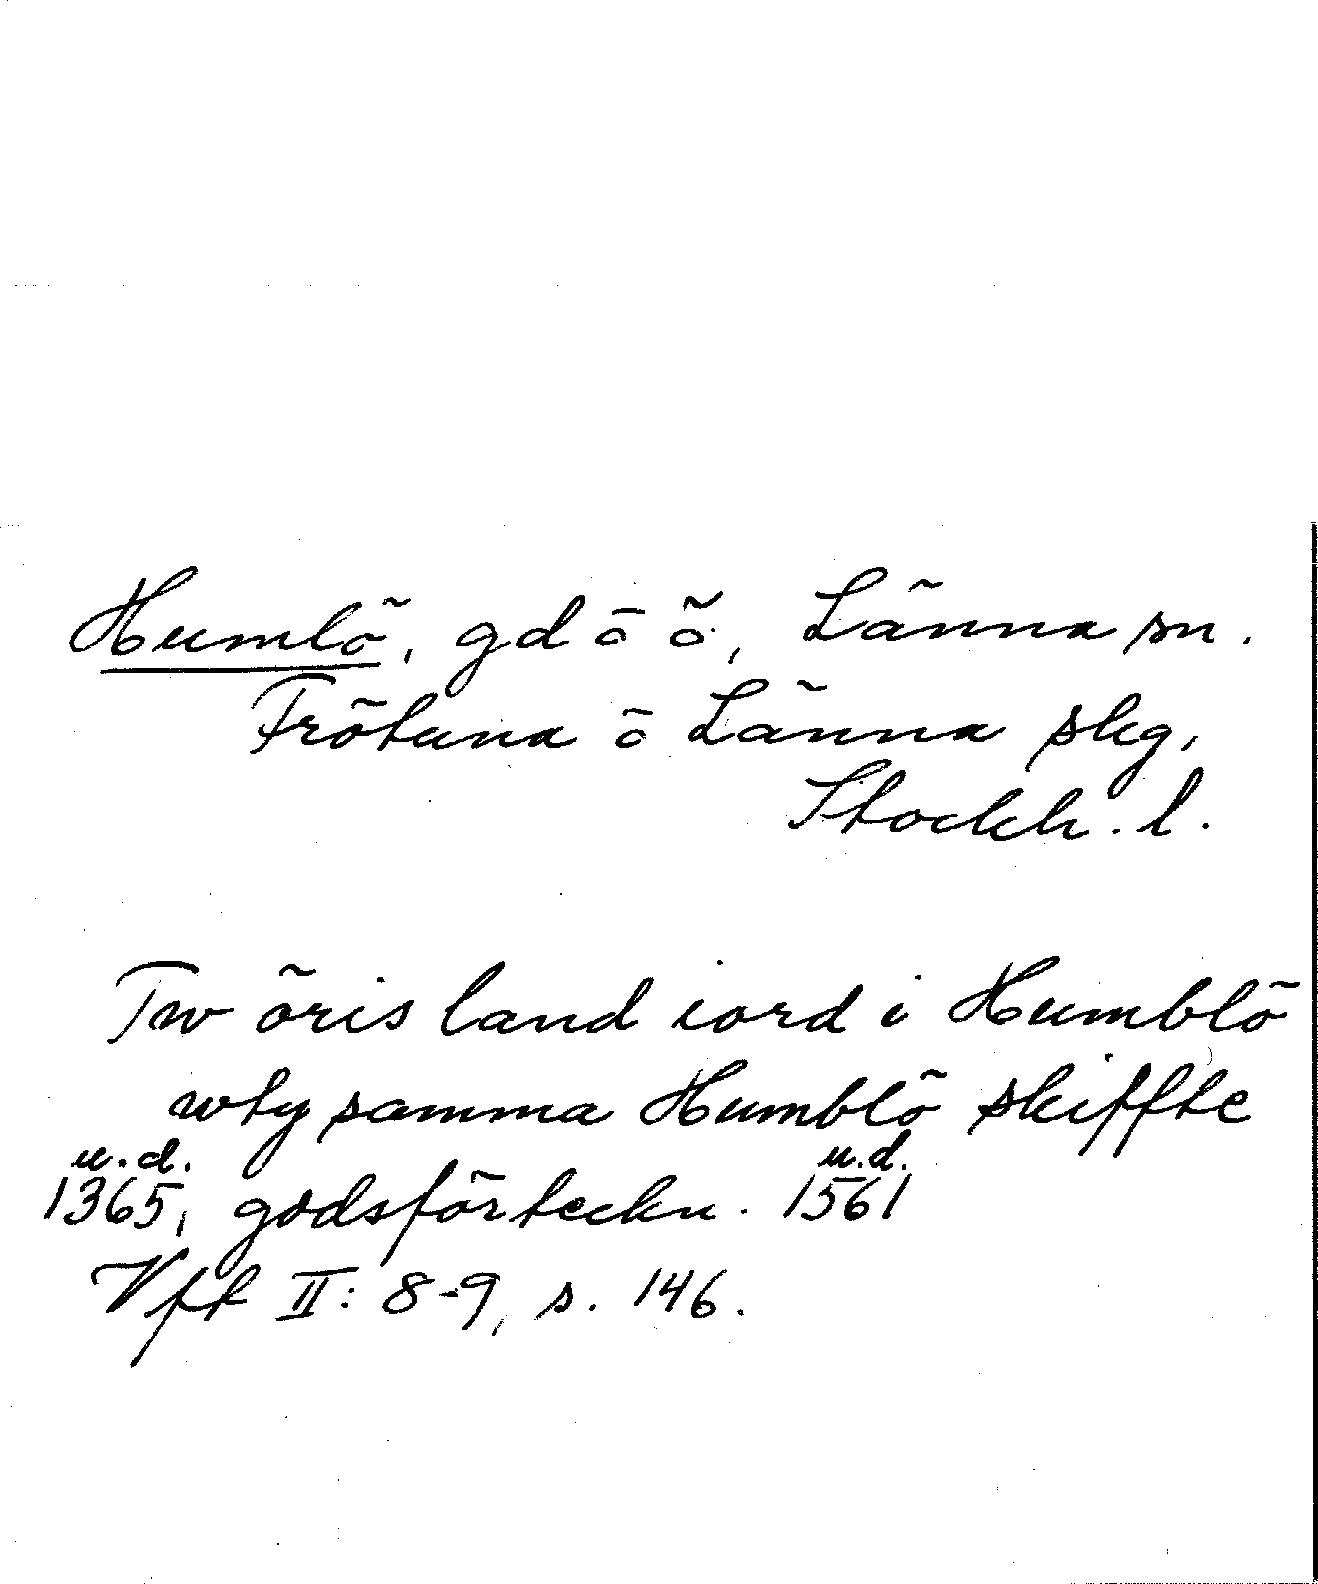 Humlö, gd o ö, Länna sn.
Frötuna o Länna skg,
Stockh. l.
Tw öris land iord i Humblö
wty samma Humblö skiffte
u.d. u.d.
1365, godsförteckn. 1561
Vft II: 8-9, s. 146.